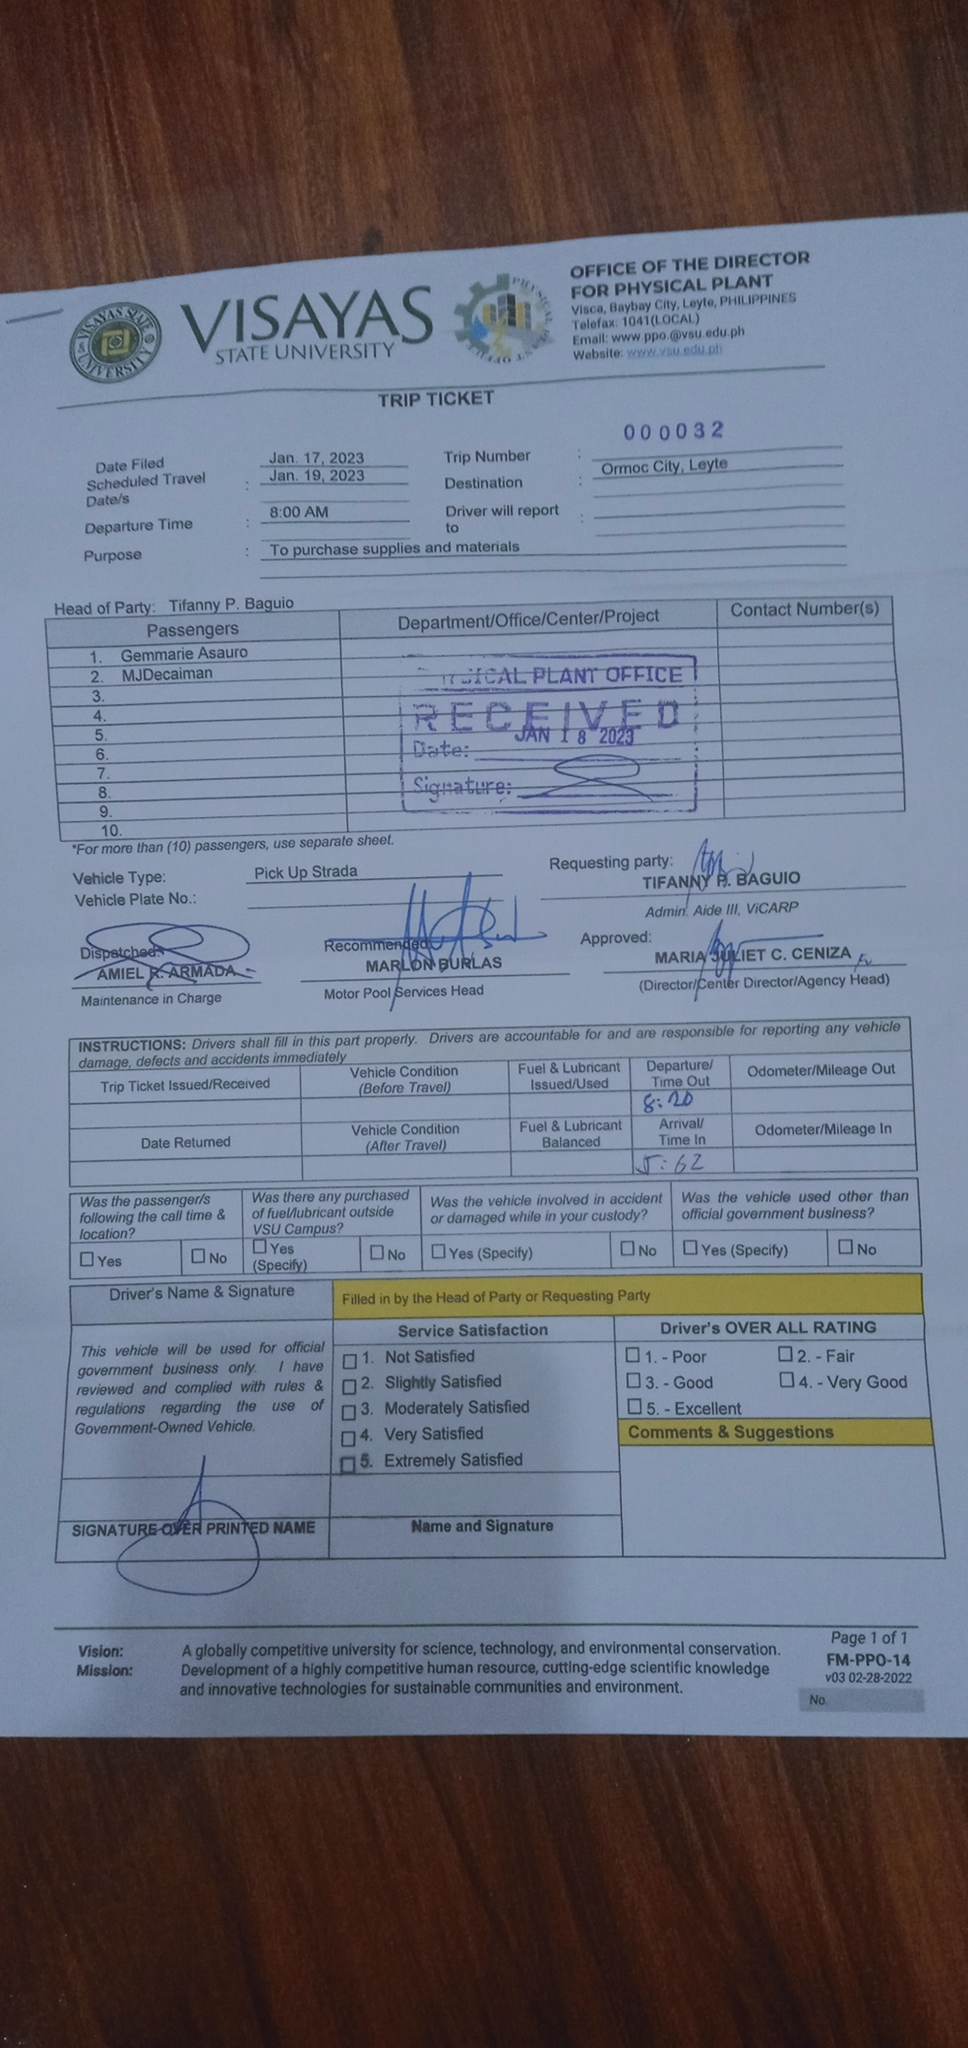 VISAYAS
STATE UNIVERSITY
VISAYAS STATE UNIVERSITY
OFFICE OF THE DIRECTOR
FOR PHYSICAL PLANT
Visca, Baybay City, Leyte, PHILIPPINES
Telefax: 1041(LOCAL)
Email: www.ppo.@vsu.edu.ph
Website: www.vsu.edu.ph
TRIP TICKET
000032
Date Filed Jan. 17, 2023 Trip Number :
Scheduled Travel Date/s : Jan. 19, 2023 Destination : Ormoc City, Leyte
Departure Time : 8:00 AM Driver will report to :
Purpose : To purchase supplies and materials
Head of Party: Tifanny P. Baguio
Passengers Department/Office/Center/Project Contact Number(s)
1. Gemmarie Asauro
2. MJDecaiman
3.
4.
5.
6.
7.
8.
9.
10.
PLANT OFFICE
RECEIVED
JAN 18 2023
Date:
Signature:
*For more than (10) passengers, use separate sheet.
Vehicle Type: Pick Up Strada
Vehicle Plate No.:
Requesting party:
TIFANNY P. BAGUIO
Admin. Aide III, ViCARP
Dispatched:
AMIEL R. ARMADA
Maintenance in Charge
Recommended:
MARLON BURLAS
Motor Pool Services Head
Approved:
MARIA JULIET C. CENIZA
(Director/Center Director/Agency Head)
INSTRUCTIONS: Drivers shall fill in this part properly. Drivers are accountable for and are responsible for reporting any vehicle
damage, defects and accidents immediately
Trip Ticket Issued/Received Vehicle Condition (Before Travel) Fuel & Lubricant Issued/Used Departure/ Time Out Odometer/Mileage Out
8:20
Date Returned Vehicle Condition (After Travel) Fuel & Lubricant Balanced Arrival/ Time In Odometer/Mileage In
Was the passenger/s following the call time & location?
Was there any purchased of fuel/lubricant outside VSU Campus?
Was the vehicle involved in accident or damaged while in your custody?
Was the vehicle used other than official government business?
Yes No Yes (Specify) No Yes (Specify) No Yes (Specify) No
Driver's Name & Signature
Filled in by the Head of Party or Requesting Party
This vehicle will be used for official
government business only. I have
reviewed and complied with rules &
regulations regarding the use of
Government-Owned Vehicle.
Service Satisfaction
1. Not Satisfied
2. Slightly Satisfied
3. Moderately Satisfied
4. Very Satisfied
5. Extremely Satisfied
Driver's OVER ALL RATING
1. - Poor 2. - Fair
3. - Good 4. - Very Good
5. - Excellent
Comments & Suggestions
SIGNATURE OVER PRINTED NAME
Name and Signature
Vision: A globally competitive university for science, technology, and environmental conservation.
Mission: Development of a highly competitive human resource, cutting-edge scientific knowledge
and innovative technologies for sustainable communities and environment.
Page 1 of 1
FM-PPO-14
v03 02-28-2022
No.